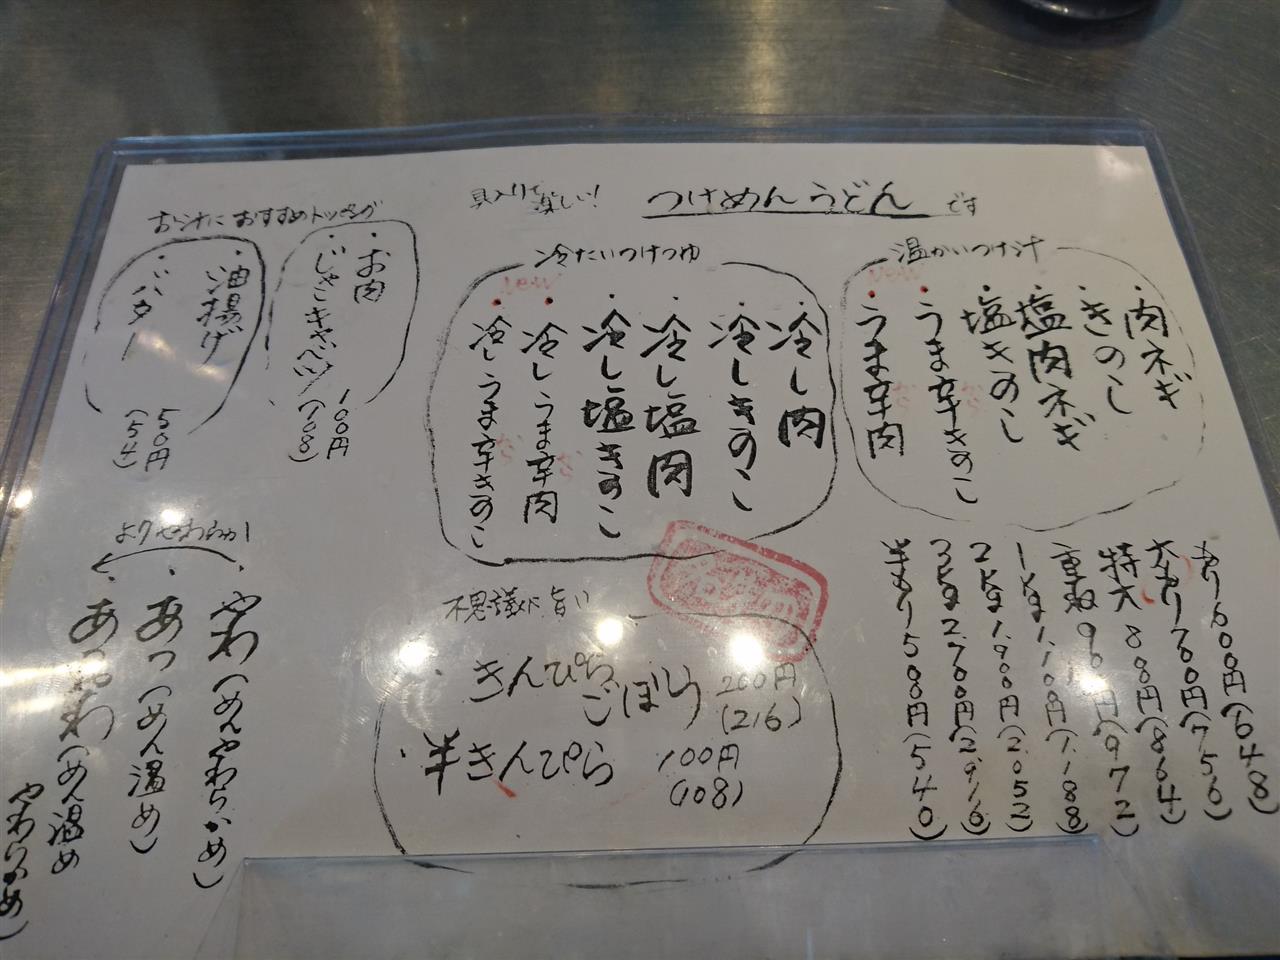 具入りで楽しい！
つけめんうどん
です
温かいつけ汁
・肉ネギ
・きのこ
・塩肉ネギ
・塩きのこ
・うま辛きのこ
・うま辛肉
new
冷たいつけつゆ
・冷し肉
・冷しきのこ
・冷し塩肉
・冷し塩きのこ
・冷しうま辛肉
・冷しうま辛きのこ
new
おすすめトッピング
・お肉
・じゃこキャベツ
100円
(108)
・油揚げ
・バター
50円
(54)
あり600円(648)
大あり700円(756)
特大800円(864)
重ね900円(972)
1kg1,100円(1,188)
2kg1,900円(2,052)
3kg2,700円(2,916)
半あり500円(540)
不思議に旨い
・きんぴらごぼう 200円
(216)
・半きんぴら 100円
(108)
よりやわらかい
・やわ(めんやわらかめ)
・あつ(めん温め)
・あつやわ(めん温め
やわらかめ)